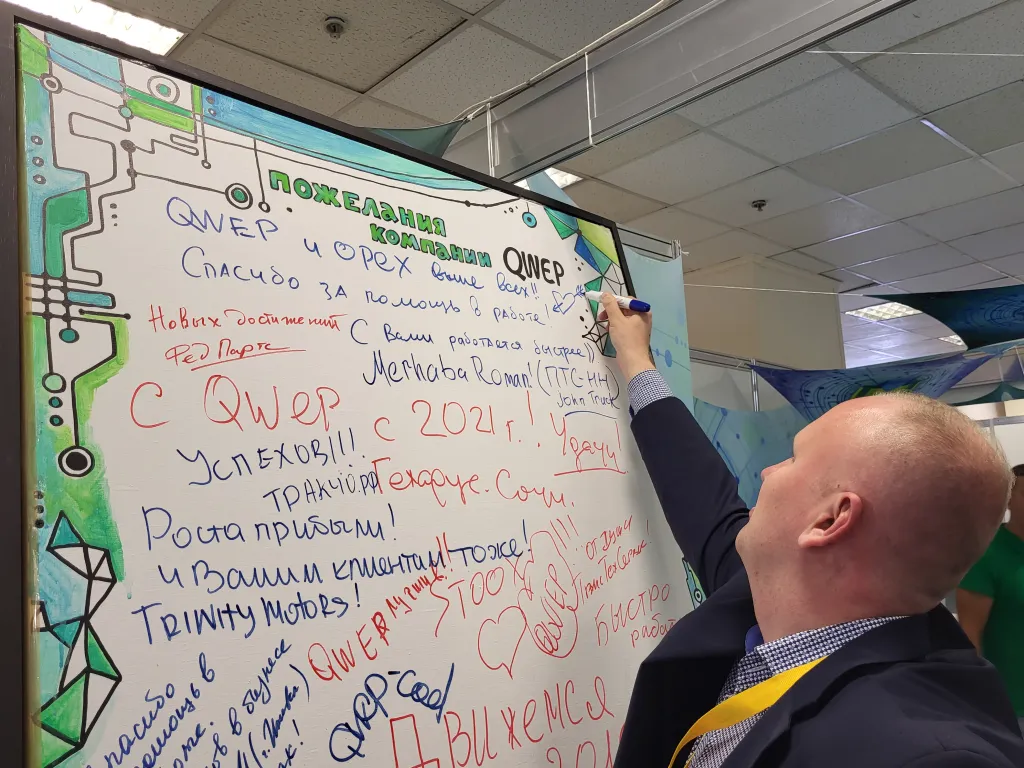 ПОЖЕЛАНИЯ
КОМПАНИИ QWEP
QWEP и ОРЕХ выше всех!!
Спасибо за помощь в работе!
Новых достижений
Фед Партс
С Вами работается быстрее))
Merhaba Roman! (ПТС-НН
John Truck
С QWEP с 2021 г.! Удачи!
УСПЕХОВ!!!
ТРАКЧО.РФ
Техарус. Сочи.
Роста прибыли!
и Вашим клиентам тоже!
TRINITY MOTORS!
QWEP лучший!!
STOO
QWEP
от души
ТрансТехСервис
БЫСТРО
QWEP-cool
Спасибо
помощь в
в бизнесе
ДВИЖЕМСЯ